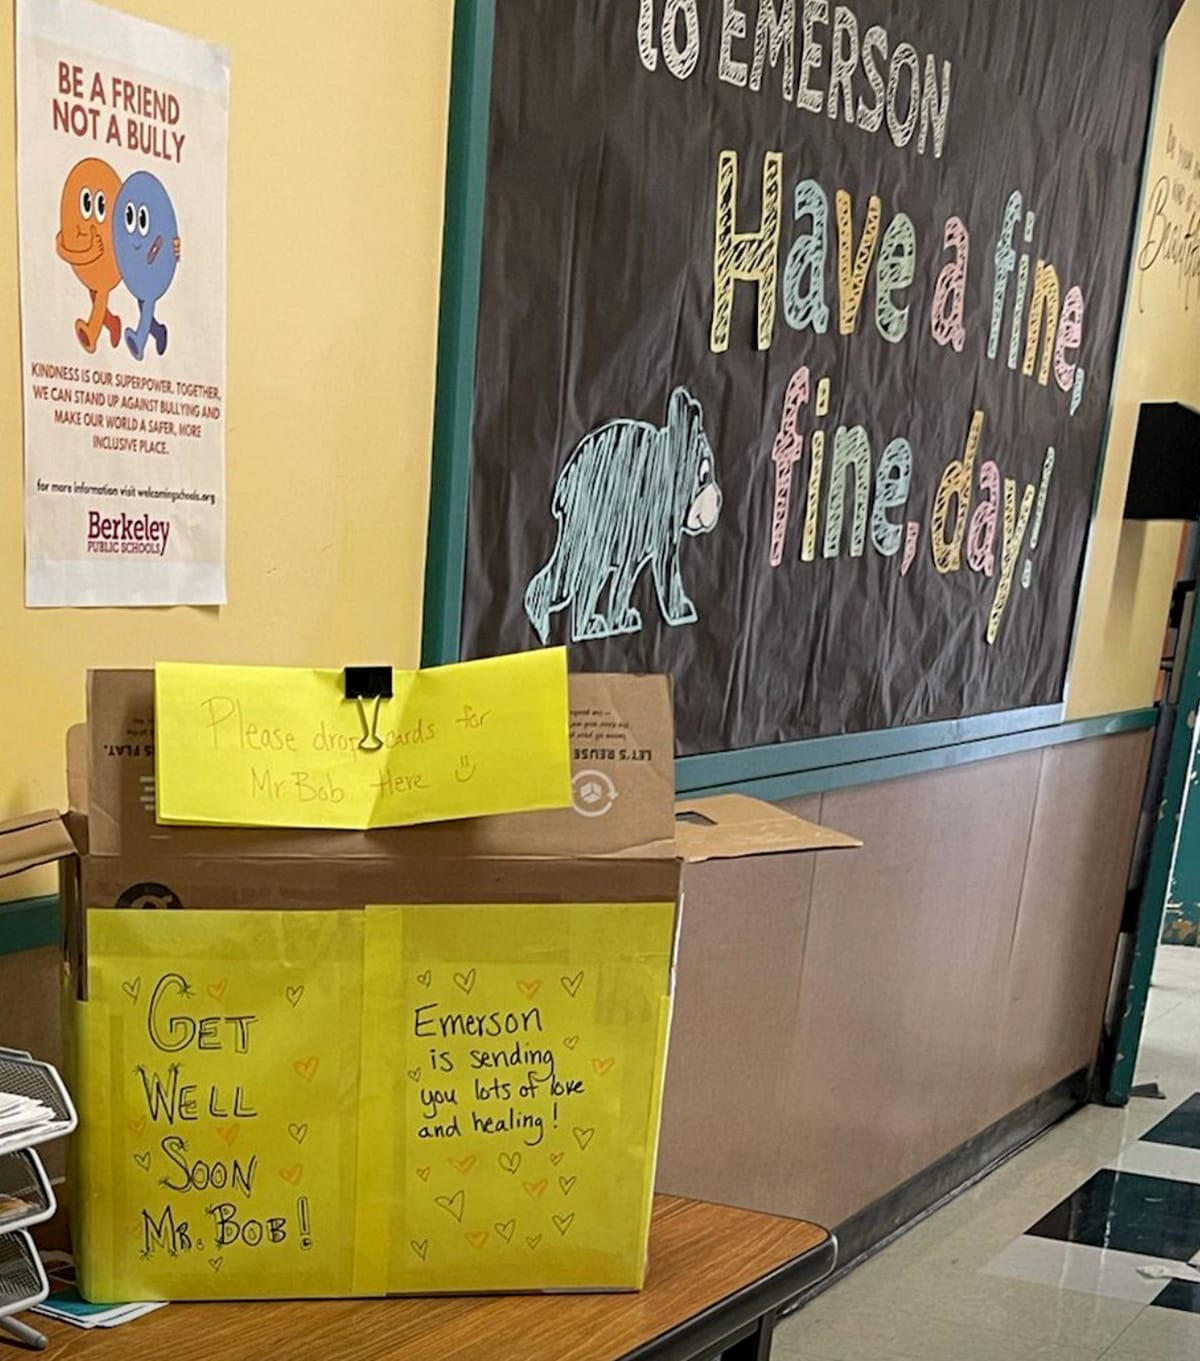 BE A FRIEND
NOT A BULLY
KINDNESS IS OUR SUPERPOWER. TOGETHER,
WE CAN STAND UP AGAINST BULLYING AND
MAKE OUR WORLD A SAFER, MORE
INCLUSIVE PLACE.
for more information visit welcomingschools.org
Berkeley
PUBLIC SCHOOLS
to EMERSON
Have a fine,
fine, day!
Please drop cards for
Mr. Bob Here
LET'S REUSE
GET
WELL
SOON
MR. BOB!
Emerson
is sending
you lots of love
and healing!